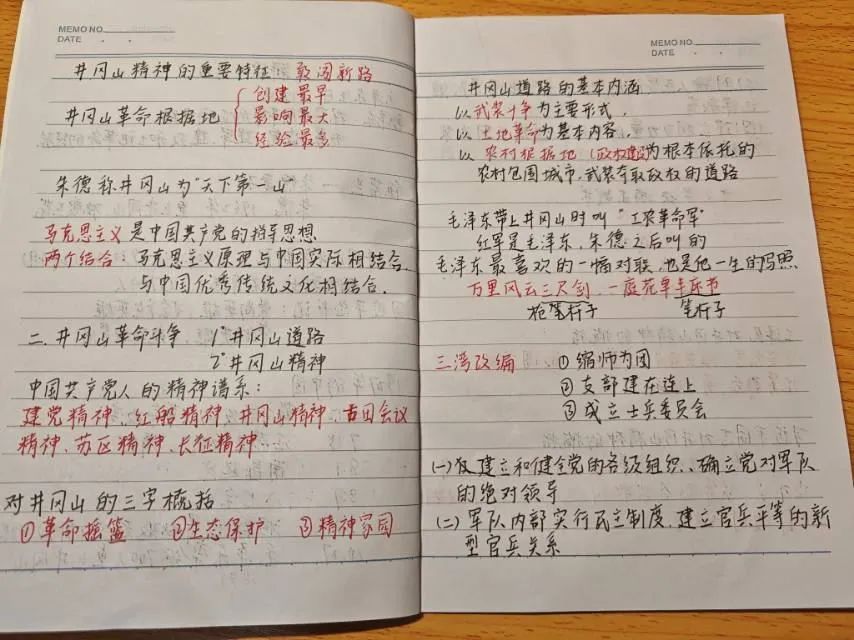 MEMO NO.
DATE . .
井冈山精神的重要特征：敢闯新路
创建最早
井冈山革命根据地 影响最大
经验最多
朱德称井冈山为"天下第一山"
马克思主义是中国共产党的指导思想
两个结合：马克思主义原理与中国实际相结合.
与中国优秀传统文化相结合.
二.井冈山革命斗争 1°井冈山道路
2°井冈山精神
中国共产党人的精神谱系：
建党精神、红船精神、井冈山精神、古田会议
精神、苏区精神、长征精神
对井冈山的三字概括
①革命摇篮 ②生态保护 ③精神家园
MEMO NO.
DATE . .
井冈山道路的基本内涵
以武装斗争为主要形式.
以土地革命为基本内容.
以农村根据地(政权建设)为根本依托的
农村包围城市.武装夺取政权的道路
毛泽东带上井冈山时叫"工农革命军"
红军是毛泽东、朱德之后叫的
毛泽东最喜欢的一幅对联.也是他一生的写照.
万里风云三尺剑.一庭花草半床书
枪杆子 笔杆子
三湾改编 ①缩师为团
②支部建在连上
③成立士兵委员会
(一)建立和健全党的各级组织、确立党对军队
的绝对领导
(二)军队内部实行民主制度.建立官兵平等的新
型官兵关系